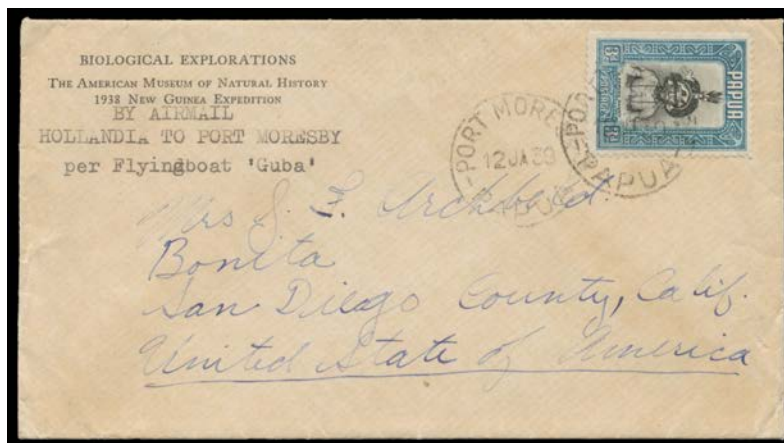 BIOLOGICAL EXPLORATIONS
THE AMERICAN MUSEUM OF NATURAL HISTORY
1938 NEW GUINEA EXPEDITION
BY AIRMAIL
HOLLANDIA TO PORT MORESBY
per Flyingboat 'Guba'
PORT MORE
12 JA 39
PAPUA
PAPUA
PAPUA
8d
8d
Mrs J. F. Archbold
Bonita
San Diego County, Calif.
United State of America